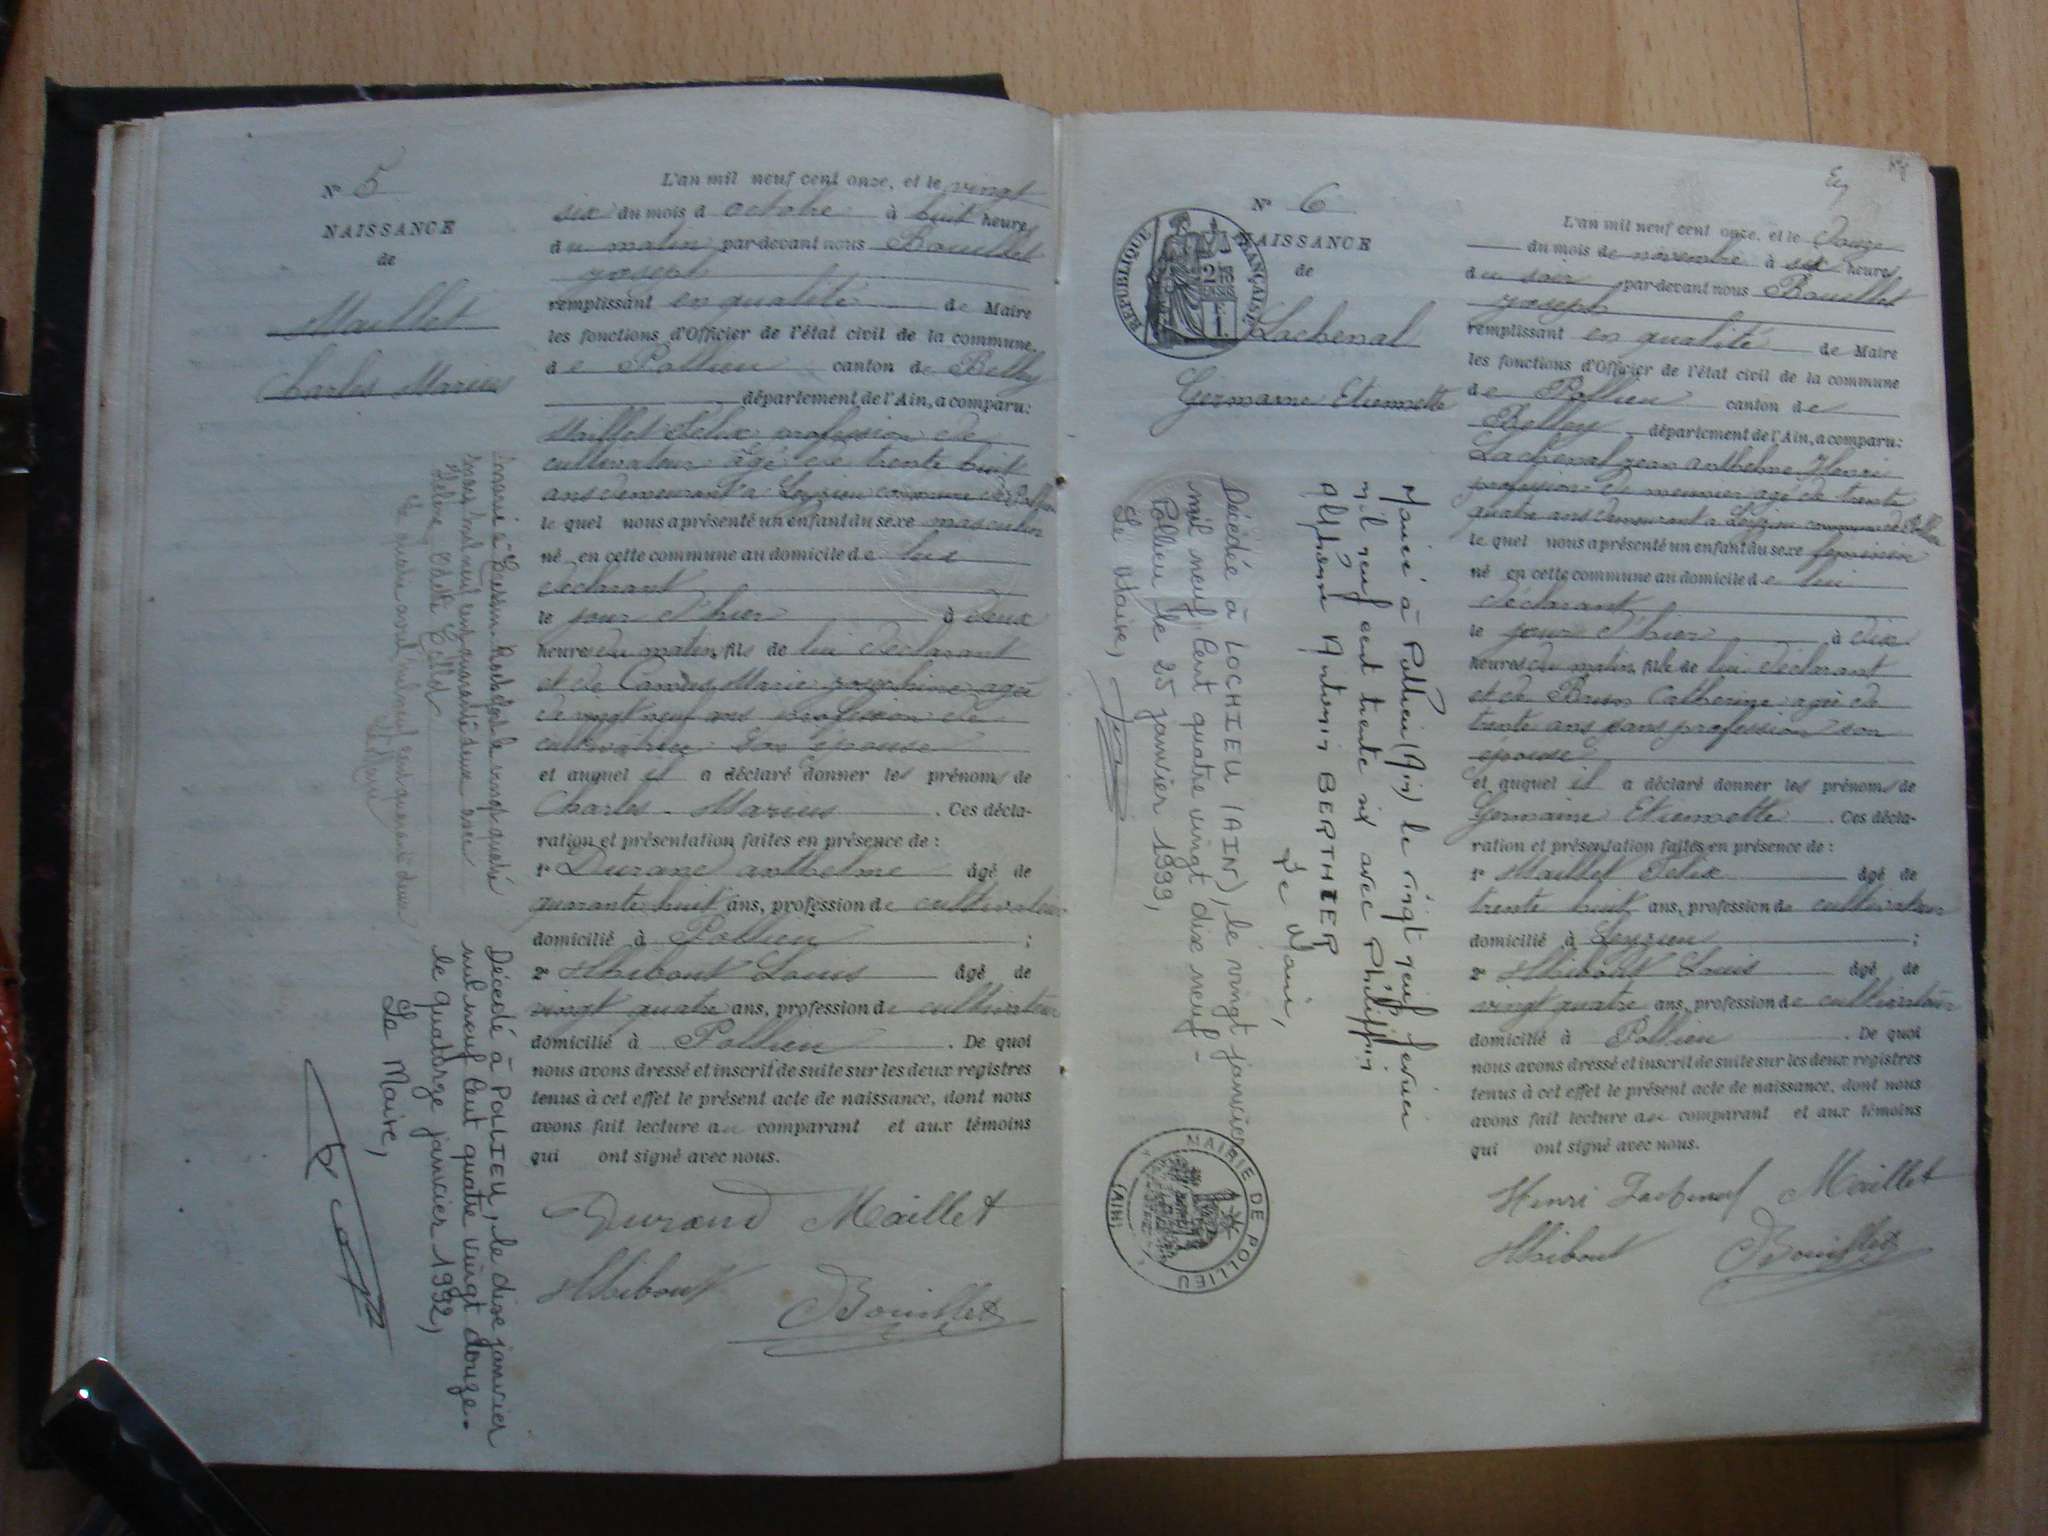 N° 5
NAISSANCE
de
Maillet
Charles Marius
L'an mil neuf cent onze, et le vingt
six du mois d octobre à huit heure
du matin par-devant nous Bouillet
joseph
remplissant en qualité de Maire
les fonctions d'Officier de l'état civil de la commune
de Pollieu canton de Belley
département de l'Ain, a comparu:
Maillet Félix profession de
cultivateur âgé de trente huit
ans demeurant à Leyzieu commune de Pollieu
le quel nous a présenté un enfant du sexe masculin
né en cette commune au domicile de lui
déclarant
le jour d'hier à deux
heures du matin, fils de lui déclarant
et de Marie joséphine agée
de vingt neuf ans profession de
son épouse
et auquel il a déclaré donner les prénoms de
Charles Marius. Ces décla-
ration et présentation faites en présence de :
1° Durand anthelme âgé de
quarante huit ans, profession de cultivateur
domicilié à Pollieu ;
2° Thibout Louis âgé de
vingt quatre ans, profession de cultivateur
domicilié à Pollieu. De quoi
nous avons dressé et inscrit de suite sur les deux registres
tenus à cet effet le présent acte de naissance, dont nous
avons fait lecture au comparant et aux témoins
qui ont signé avec nous.
Durand Maillet
Thibout Bouillet
le vingt quatre
mil neuf cent quarante deux avec
Hélène Odette
mil neuf cent quarante deux
Le Maire
Décédé à POLLIEU, le dix janvier
mil neuf Cent quatre vingt douze.
le quatorze janvier 1992,
Le Maire,
N° 6
NAISSANCE
de
RÉPUBLIQUE FRANÇAISE
Lachenal
Germaine Etiennette
L'an mil neuf cent onze, et le douze
du mois de novembre à six heures
du soir par-devant nous Bouillet
joseph
remplissant en qualité de Maire
les fonctions d'Officier de l'état civil de la commune
de Pollieu canton de
Belley département de l'Ain, a comparu:
Lachenal jean anthelme Henri
profession de meunier agé de trente
quatre ans demeurant à Leyzieu commune de Pollieu
le quel nous a présenté un enfant du sexe feminin
né en cette commune au domicile de lui
déclarant
le jour d'hier à dix
heures du matin, fille de lui déclarant
et de Brun Catherine agée de
trente ans sans profession son
épouse
et auquel il a déclaré donner les prénoms de
Germaine Etiennette. Ces décla-
ration et présentation faites en présence de :
1° Maillet Félix âgé de
trente huit ans, profession de cultivateur
domicilié à Leyzieu ;
2° Thibout Louis âgé de
vingt quatre ans, profession de cultivateur
domicilié à Pollieu. De quoi
nous avons dressé et inscrit de suite sur les deux registres
tenus à cet effet le présent acte de naissance, dont nous
avons fait lecture au comparant et aux témoins
qui ont signé avec nous.
Henri Lachenal Maillet
Thibout Bouillet
Marié à Pollieu (Ain) le vingt neuf fevrier
mil neuf cent trente six avec Philippin
Alphonse Antonin BERTHIER
Le Maire,
Décédé à LOCHIEU (AIN), le vingt janvier
mil neuf Cent quatre vingt dix neuf -
Pollieu le 25 janvier 1999,
Le Maire,
MAIRIE DE POLLIEU
(AIN)